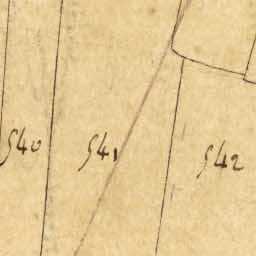 540 541 542